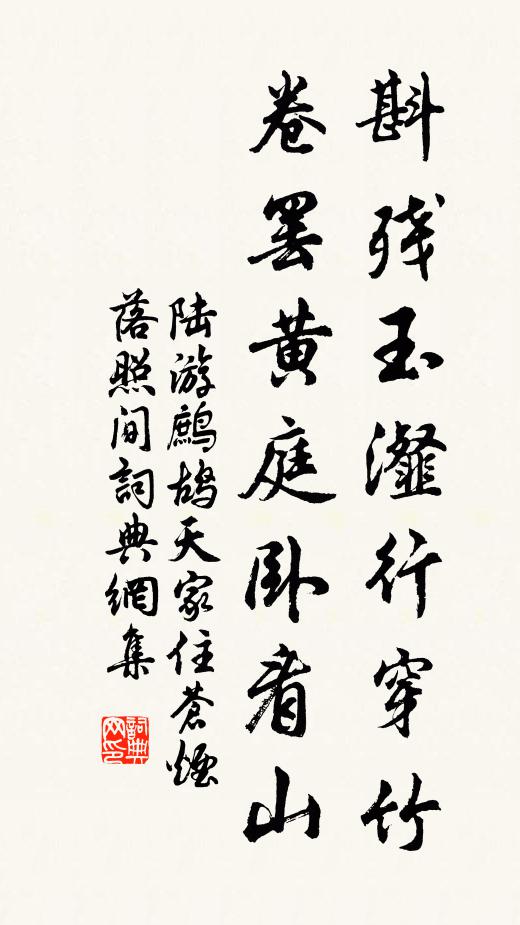 斟残玉瀣行穿竹
卷罢黄庭卧看山
陆游鹧鸪天家住苍烟
落照间詞典網集
詞典
网印